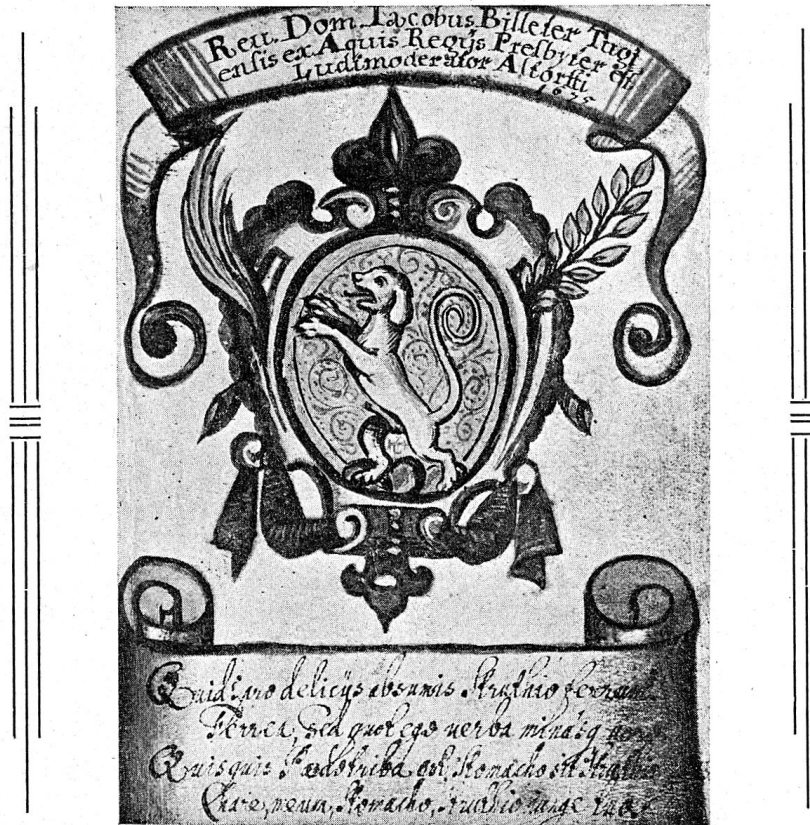 Reu. Dom. Iacobus Billeter Tugi
ensis ex Aquis Regijs Presbyter et
Ludimoderator Altorffi
1675
Quid pro delicijs absumis Struthio ferrum
Ferrea, sed quot ego verba minasq
Quisquis Paedotriba est, Stomacho sit
Chare, meum, Stomacho, Struthio iunge tuo